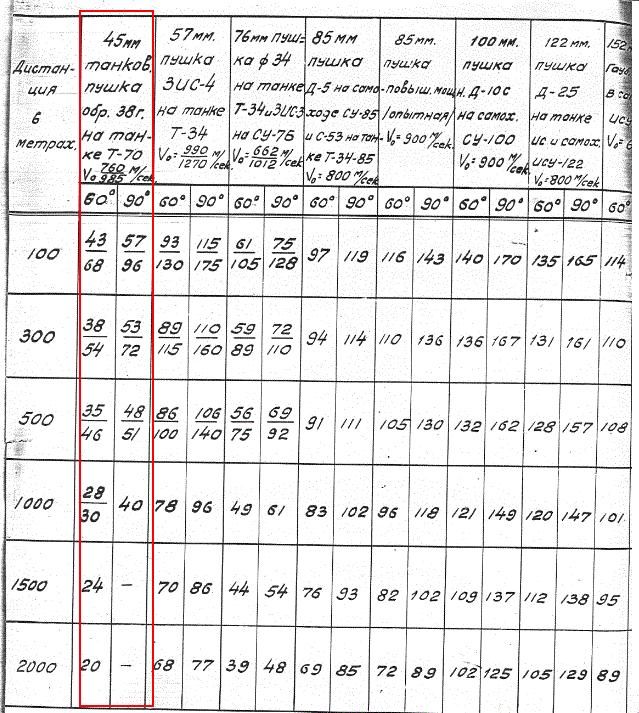 Дистанция в метрах. | 45мм танков. пушка обр. 38г. на танке Т-70 V₀ 760/985 м/сек. | 57мм. пушка ЗИС-4 на танке Т-34 V₀= 990/1270 м/сек. | 76мм пушка ф 34 на танке Т-34 и ЗИС3 на СУ-76 V₀= 662/1012 м/сек. | 85мм пушка Д-5 на самоходе СУ-85 и С-53 на танке Т-34-85 V₀= 800 м/сек | 85мм. пушка повыш. мощн. /опытная/ V₀= 900 м/сек. | 100мм. пушка Д-10с на самох. СУ-100 V₀= 900 м/сек. | 122мм. пушка Д-25 на танке ИС и самох. ИСУ-122 V₀=800 м/сек | 152
60° | 90° | 60° | 90° | 60° | 90° | 60° | 90° | 60° | 90° | 60° | 90° | 60° | 90° | 60°
100 | 43/68 | 57/96 | 93/130 | 115/175 | 61/105 | 75/128 | 97 | 119 | 116 | 143 | 140 | 170 | 135 | 165 | 114
300 | 38/54 | 53/72 | 89/115 | 110/160 | 59/89 | 72/110 | 94 | 114 | 110 | 136 | 136 | 167 | 131 | 161 | 110
500 | 35/46 | 48/51 | 86/100 | 106/140 | 56/75 | 69/92 | 91 | 111 | 105 | 130 | 132 | 162 | 128 | 157 | 108
1000 | 28/30 | 40 | 78 | 96 | 49 | 61 | 83 | 102 | 96 | 118 | 121 | 149 | 120 | 147 | 101
1500 | 24 | — | 70 | 86 | 44 | 54 | 76 | 93 | 82 | 102 | 109 | 137 | 112 | 138 | 95
2000 | 20 | — | 68 | 77 | 39 | 48 | 69 | 85 | 72 | 89 | 102 | 125 | 105 | 129 | 89